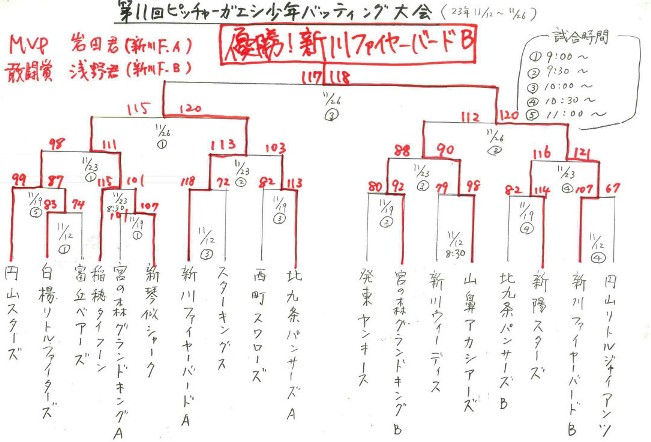 第11回ピッチャーガエシ少年バッティング大会(23年11/12～11/26)
MVP 岩田君(新川F.A)
敢闘賞 浅野君(新川F.B)
優勝！新川ファイヤーバードB
試合時間
① 9:00～
② 9:30～
③ 10:00～
④ 10:30～
⑤ 11:00～
117 118
11/26 ③
115 120 112 120
11/26 ① 11/26 ②
98 111 113 103 88 90 116 121
11/23 ① 11/23 ② 11/23 ③ 11/23 ④
99 87 115 101 118 72 82 113 80 92 79 98 82 114 107 67
11/19 ⑤ 11/23 8:30 11/12 ③ 11/19 ③ 11/19 ② 11/12 8:30 11/19 ④ 11/12 ④
83 74 101 107
11/12 ① 11/19 ①
円山スターズ
白楊リトルファイターズ
富丘ベアーズ
稲穂タイフーン
宮の森グランドキングA
新琴似シャーク
新川ファイヤーバードA
スターキングス
西町スワローズ
北九条パンサーズA
発東ヤンキース
宮の森グランドキングB
新川ウィーディス
山鼻アカシアーズ
北九条パンサーズB
新陽スターズ
新川ファイヤーバードB
円山リトルジャイアンツ